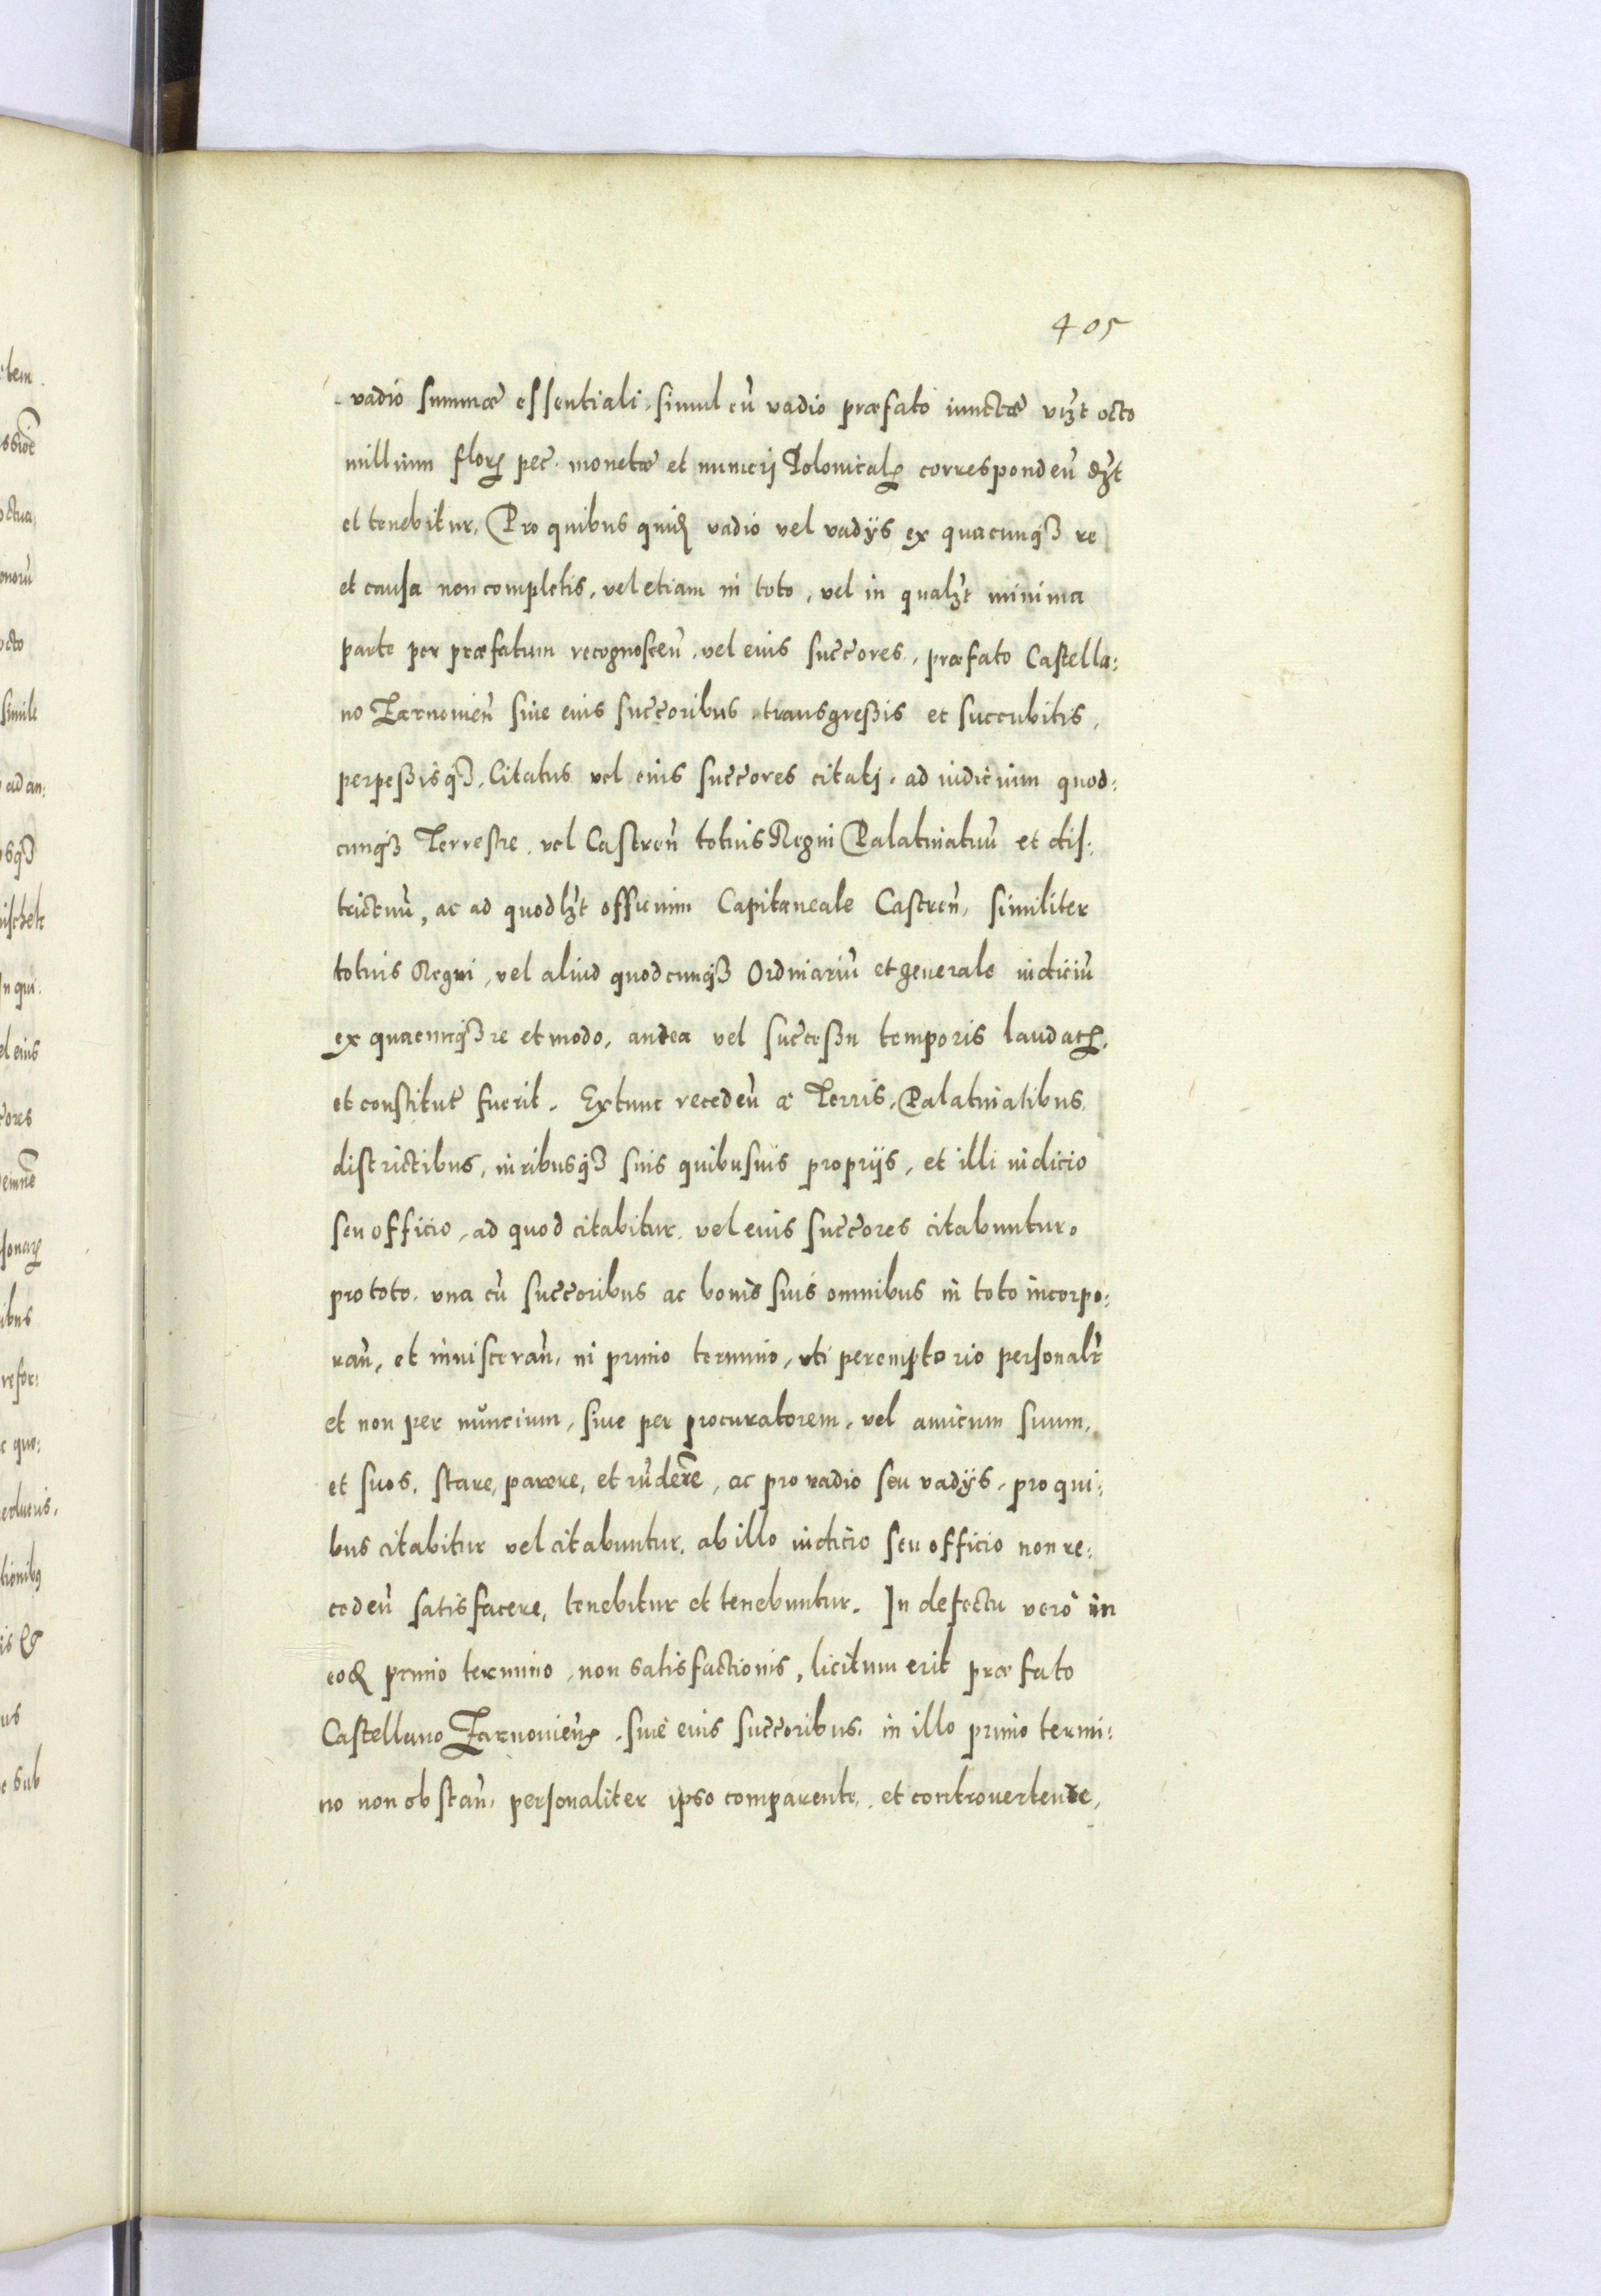 405
vadio summæ essentiali, simul cū vadio præfato iunctæ vizt octo
millium floꝝ pec. monetæ et numerj Polonicalꝫ correspondeñ dꝫt
et tenebitur. Pro quibus quidꝫ vadio vel vadijs ex quacunqꝫ re
et causa non completis, vel etiam in toto, vel in qualꝫt minima
parte per præfatum recognosceñ, vel eius succ̄ores, præfato Castella:
no Zarnovieñ siue eius succ̄oribus transgreßis et succubitis,
perpeßisqꝫ, Citatus vel eius succ̄ores citatj, ad iudicium quod:
cunqꝫ Terrestre, vel Castreñ totius Regni Palatinatuū et dis:
trictuū, ac ad quodlꝫt officium Capitaneale Castreñ, similiter
totius Regni, vel aliud quodcunqꝫ Ordinariū et generale iudiciū
ex quacunqꝫ re et modo, antea vel succeßu temporis laudatꝫ,
et constitut̄ fuerit. Extunc recedeñ a Terris, Palatinatibus,
districtibus, iuribusqꝫ suis quibusuis proprijs, et illi iudicio
seu officio, ad quod citabitur, vel eius succ̄ores citabuntur,
pro toto, una cū succ̄oribus ac bonis suis omnibus in toto incorpo:
rañ, et inuiscerañ, in primo termino, uti peremptorio personalr̄
et non per nuncium, siue per procuratorem, vel amicum suum,
et suos, stare, parere, et rūdere, ac pro vadio seu vadijs, pro qui:
bus citabitur vel citabuntur, ab illo iudicio seu officio non re:
cedeñ satisfacere, tenebitur et tenebuntur. In defectu verò in
eodꝫ primo termino, non satisfactionis, licitum erit præfato
Castellano Zarnovienꝫ, siue eius succ̄oribus, in illo primo termi:
no non obstañ, personaliter ipso comparente, et controuertente,